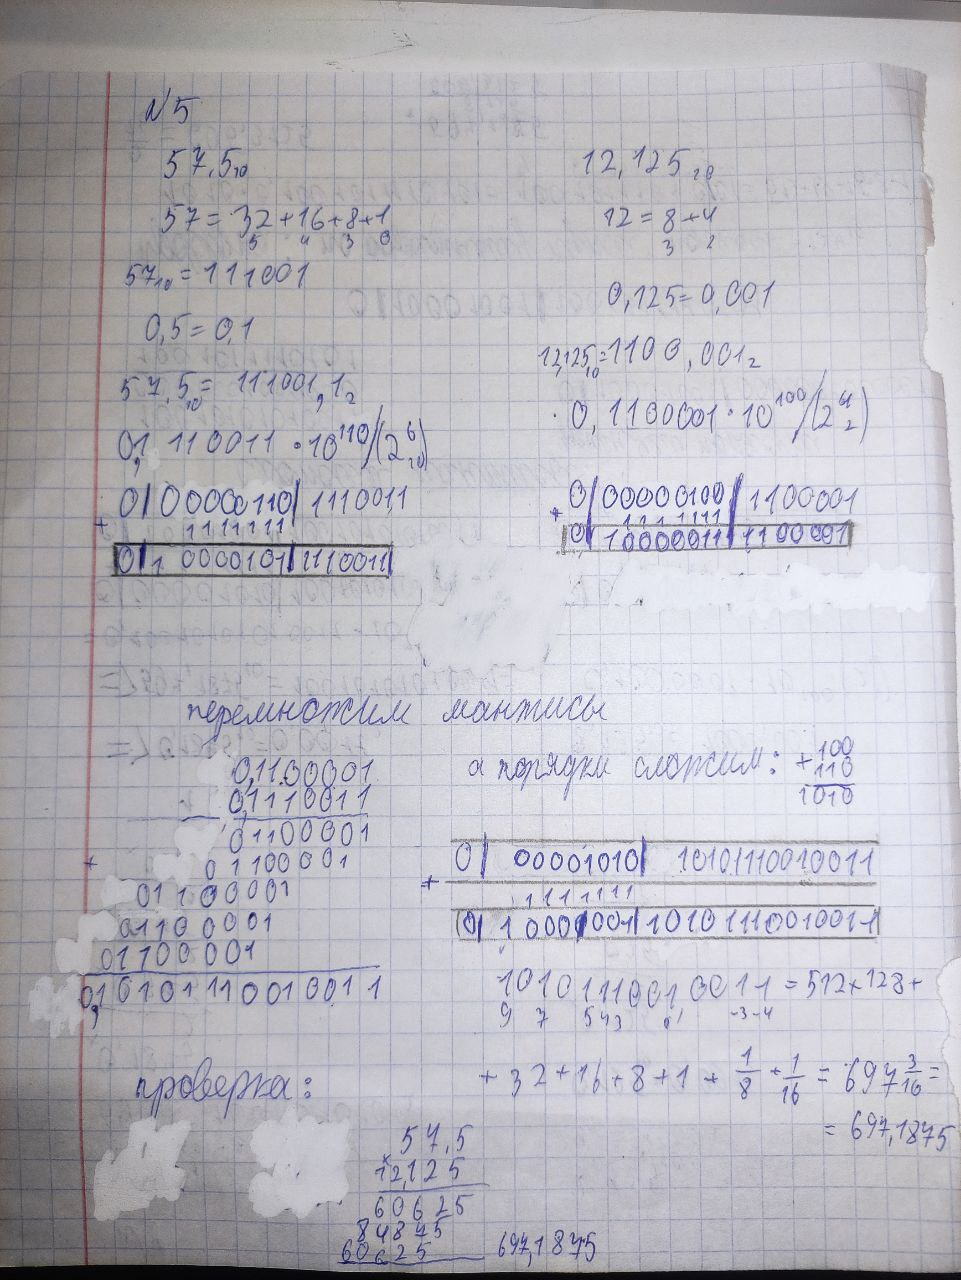 N5
57,5₁₀
57 = 32 + 16 + 8 + 1
5 4 3 0
57₁₀ = 111001
0,5 = 0,1
57,5₁₀ = 111001,1₂
0,1110011 · 10¹¹⁰/(2⁶₁₀)
0| 00000110| 1110011
+ 1111111
0| 1 0000101| 1110011
12,125₁₀
12 = 8 + 4
3 2
0,125 = 0,001
12,125₁₀ = 1100,001₂
0,1100001 · 10¹⁰⁰/(2⁴₂)
0| 00000100| 1100001
+ 1111111
0| 10000011| 1100001
перемножим мантисы
0,1100001
0,1110011
01100001
+ 01100001
01100001
01100001
01100001
0,10101110010011
а порядки сложим:
100
+ 110
1010
0| 00001010| 10101110010011
+ 1111111
0| 1 0001001| 10101110010011
10101110010011 = 512 + 128 +
9 7 5 4 3 0 -3 -4
+ 32 + 16 + 8 + 1 + 1/8 + 1/16 = 697 3/16 =
= 697,1875
проверка:
57,5
× 12,125
60625
84875
60625
697,1875